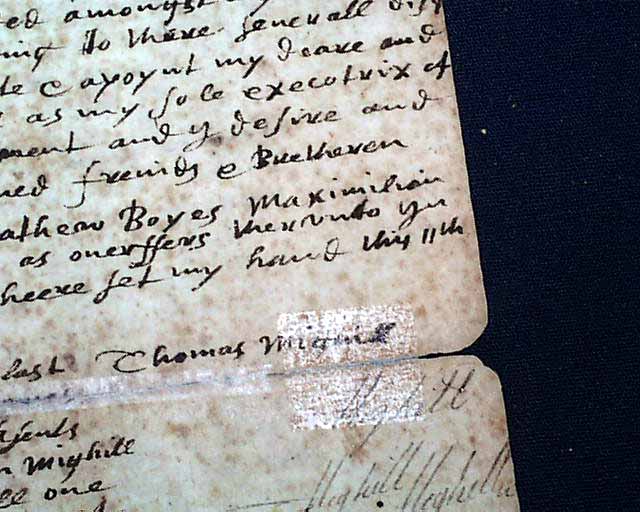 ed amongst
ing to there generall
te & apoynt my deare and
as my sole executrix of
ment and I desire and
ed freinds & Bretheren
athew Boyes Maximilian
as overssers therunto you
heere set my hand this 11th
last Thomas Mighill
Mighill
n Mighill
one
Mighill Meghill